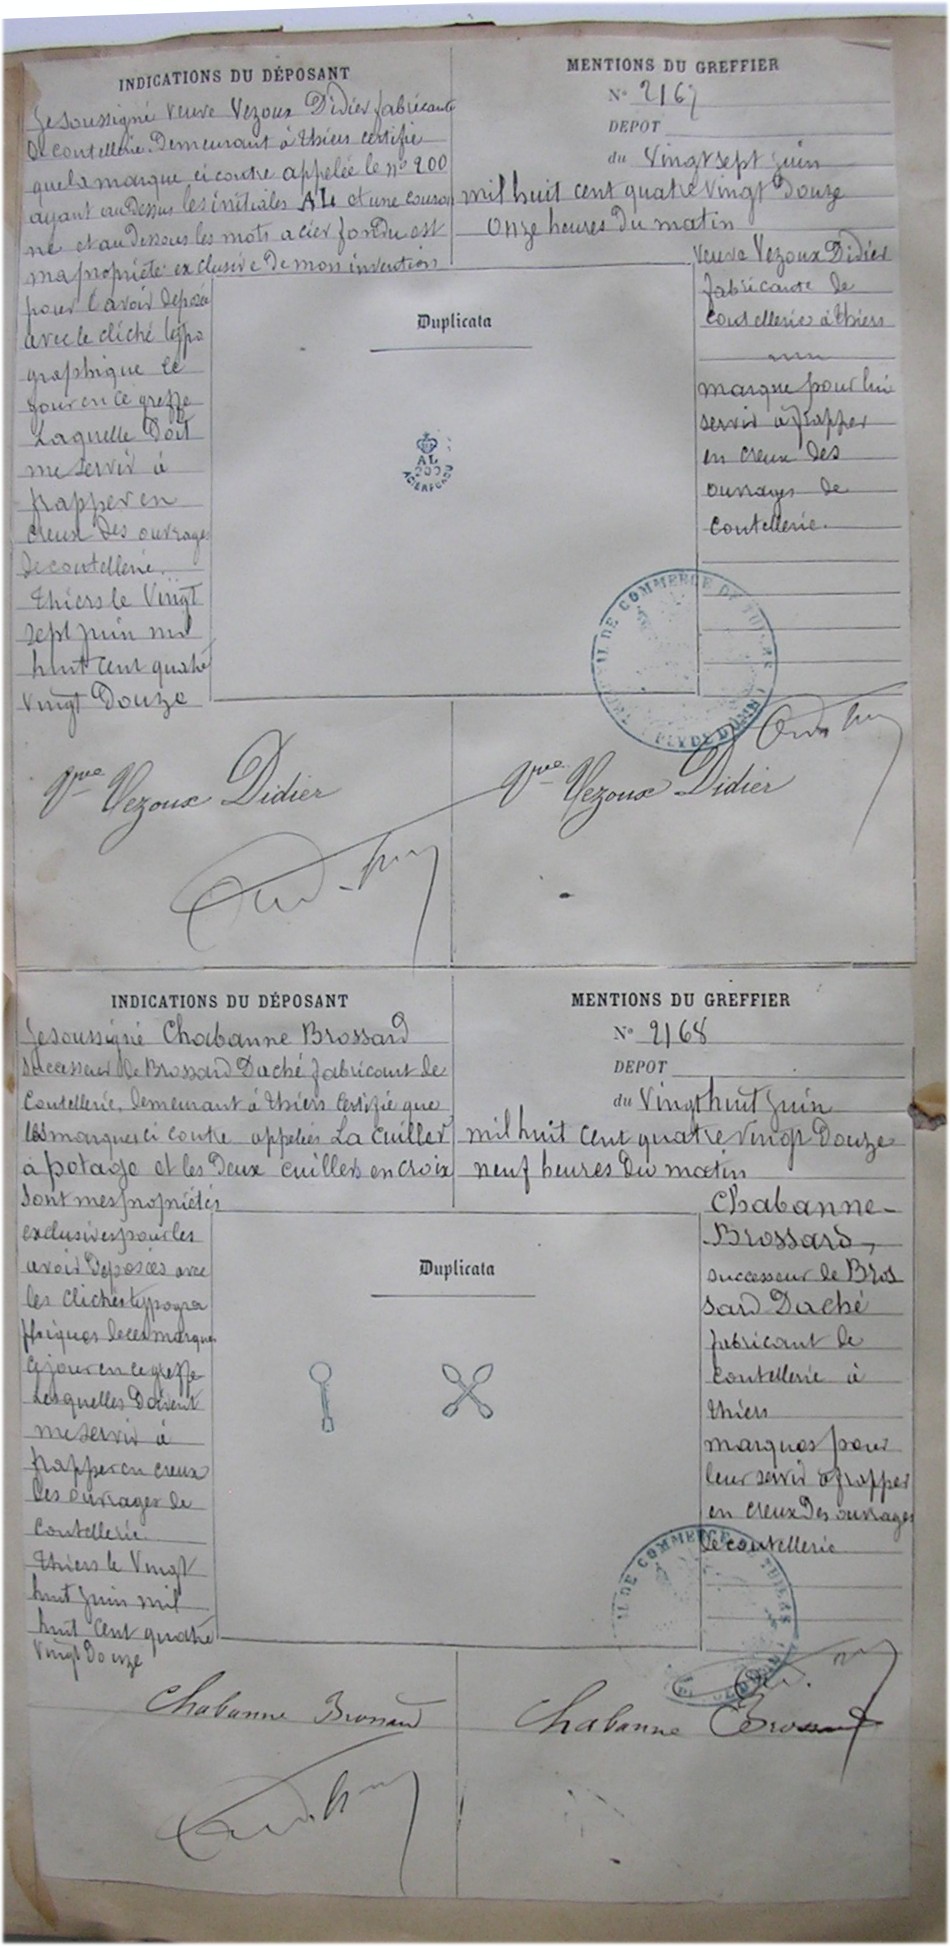 INDICATIONS DU DÉPOSANT
Je soussigné Veuve Vezoux Didier fabricante
de coutellerie. Demeurant à Thiers certifie
que la marque ci contre appelée le n° 200
ayant au dessus les initiales AL et une couron
ne et au dessous les mots acier fondu est
ma propriété exclusive de mon invention
pour l'avoir déposée
avec le cliché typo
graphique ce
jour en ce greffe
Laquelle doit
me servir à
frapper en
creux des ouvrages
de coutellerie.
Thiers le Vingt
sept juin mil
huit cent quatre
vingt Douze
MENTIONS DU GREFFIER
N° 2167
DEPOT
du Vingt sept juin
mil huit cent quatre vingt Douze
onze heures du matin
Veuve Vezoux Didier
fabricante de
coutellerie à Thiers
marque pour lui
servir à frapper
en creux des
ouvrages de
coutellerie.
Duplicata
AL
200
ACIER FONDU
TRIBUNAL DE COMMERCE DE THIERS
PUY DE DOME
Vve Vezoux Didier
Vve Vezoux Didier
INDICATIONS DU DÉPOSANT
Je soussigné Chabanne Brossard
successeur de Brossard Daché fabricant de
Coutellerie, demeurant à Thiers certifie que
les marques ci contre appelées La Cuiller
à potage et les Deux cuillers en croix
sont mes propriétés
exclusives pour les
avoir déposées avec
les clichés typogra
phiques de ces marques
ce jour en ce greffe
Lesquelles doivent
me servir à
frapper en creux
des ouvrages de
coutellerie.
Thiers le Vingt
huit juin mil
huit cent quatre
vingt Douze
MENTIONS DU GREFFIER
N° 2168
DEPOT
du Vingt huit juin
mil huit cent quatre vingt Douze
neuf heures du matin
Chabanne-
Brossard,
successeur de Bros
sard Daché
fabricant de
coutellerie à
Thiers
marques pour
leur servir à frapper
en creux des ouvrages
de coutellerie
Duplicata
DE COMMERCE DE THIERS
Chabanne Brossard
Chabanne Brossard